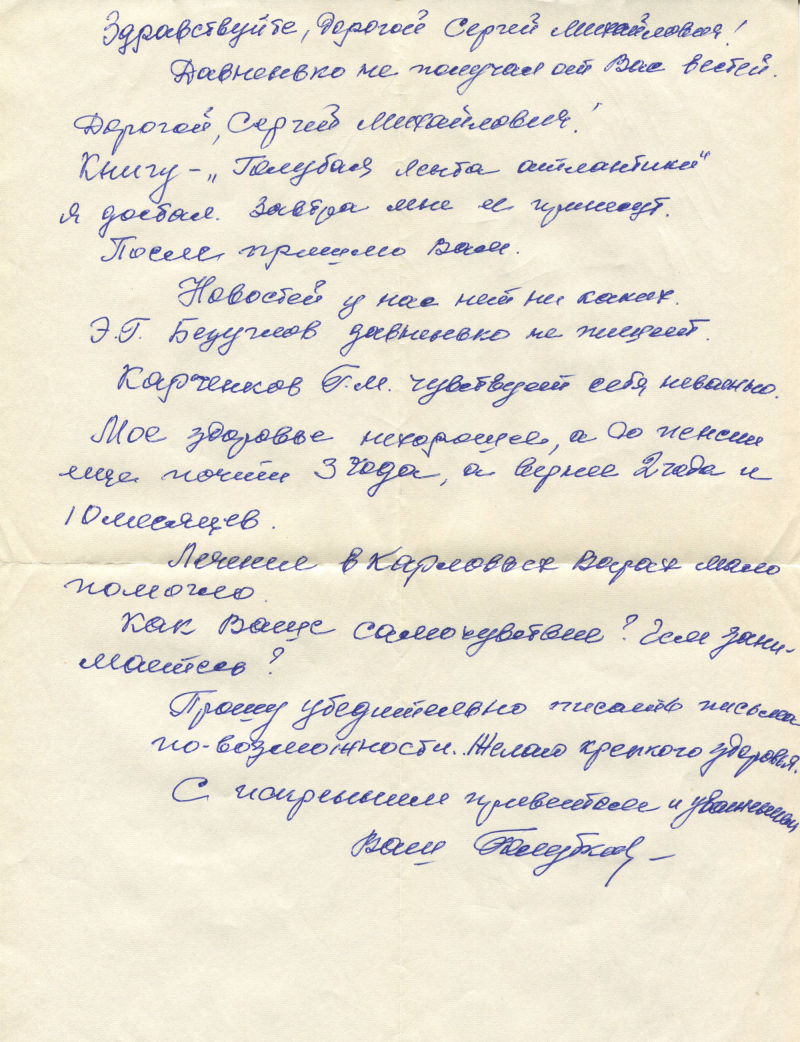 Здравствуйте, Дорогой Сергей Михайлович!
Давненько не получал от Вас вестей.
Дорогой, Сергей Михайлович!
Книгу – „Голубая лента атлантики"
я достал. Завтра мне её принесут.
После пришлю Вам.
Новостей у нас нет ни каких.
Э.Г. давненько не пишет.
Карченков Г.М. чувствует себя неважно.
Мое здоровье нехорошее, а до пенсии
еще почти 3 года, а вернее 2 года и
10 месяцев.
Лечение в Карловых Варах мало
помогло.
Как Ваше самочувствие? Чем зани-
маетесь?
Прошу убедительно писать письма
по-возможности. Желаю крепкого здоровья.
С искренним приветом и уважением
Ваш Голубков